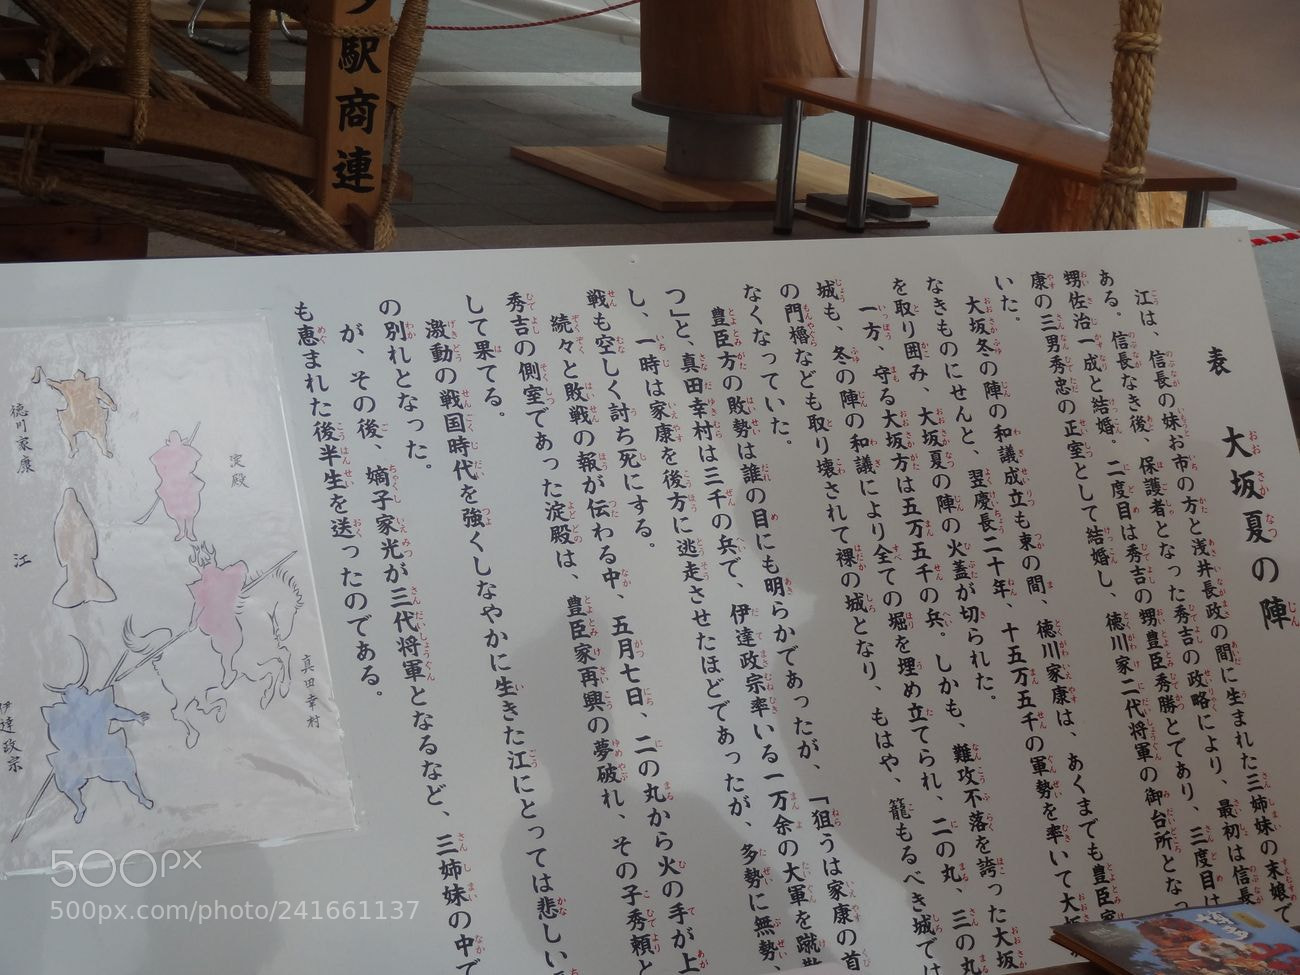 駅商連
表 大坂夏の陣
江は、信長の妹お市の方と浅井長政の間に生まれた三姉妹の末娘で
ある。信長なき後、保護者となった秀吉の政略により、最初は信長
甥佐治一成と結婚。二度目は秀吉の甥豊臣秀勝とであり、三度目は
康の三男秀忠の正室として結婚し、徳川家二代将軍の御台所とな
いた。
大坂冬の陣の和議成立も束の間、徳川家康は、あくまでも豊臣
なきものにせんと、翌慶長二十年、十五万五千の軍勢を率いて大坂
を取り囲み、大坂夏の陣の火蓋が切られた。
一方、守る大坂方は五万五千の兵。しかも、難攻不落を誇った大坂
城も、冬の陣の和議により全ての堀を埋め立てられ、二の丸、三の丸
の門櫓なども取り壊されて裸の城となり、もはや、籠もるべき城では
なくなっていた。
豊臣方の敗勢は誰の目にも明らかであったが、「狙うは家康の首
つ」と、真田幸村は三千の兵で、伊達政宗率いる一万余の大軍を蹴散
し、一時は家康を後方に逃走させたほどであったが、多勢に無勢、
戦も空しく討ち死にする。
続々と敗戦の報が伝わる中、五月七日、二の丸から火の手が上
秀吉の側室であった淀殿は、豊臣家再興の夢破れ、その子秀頼と
して果てる。
激動の戦国時代を強くしなやかに生きた江にとっては悲しい
の別れとなった。
が、その後、嫡子家光が三代将軍となるなど、三姉妹の中で
も恵まれた後半生を送ったのである。
淀殿
徳川家康
江
真田幸村
伊達政宗
500px
500px.com/photo/241661137